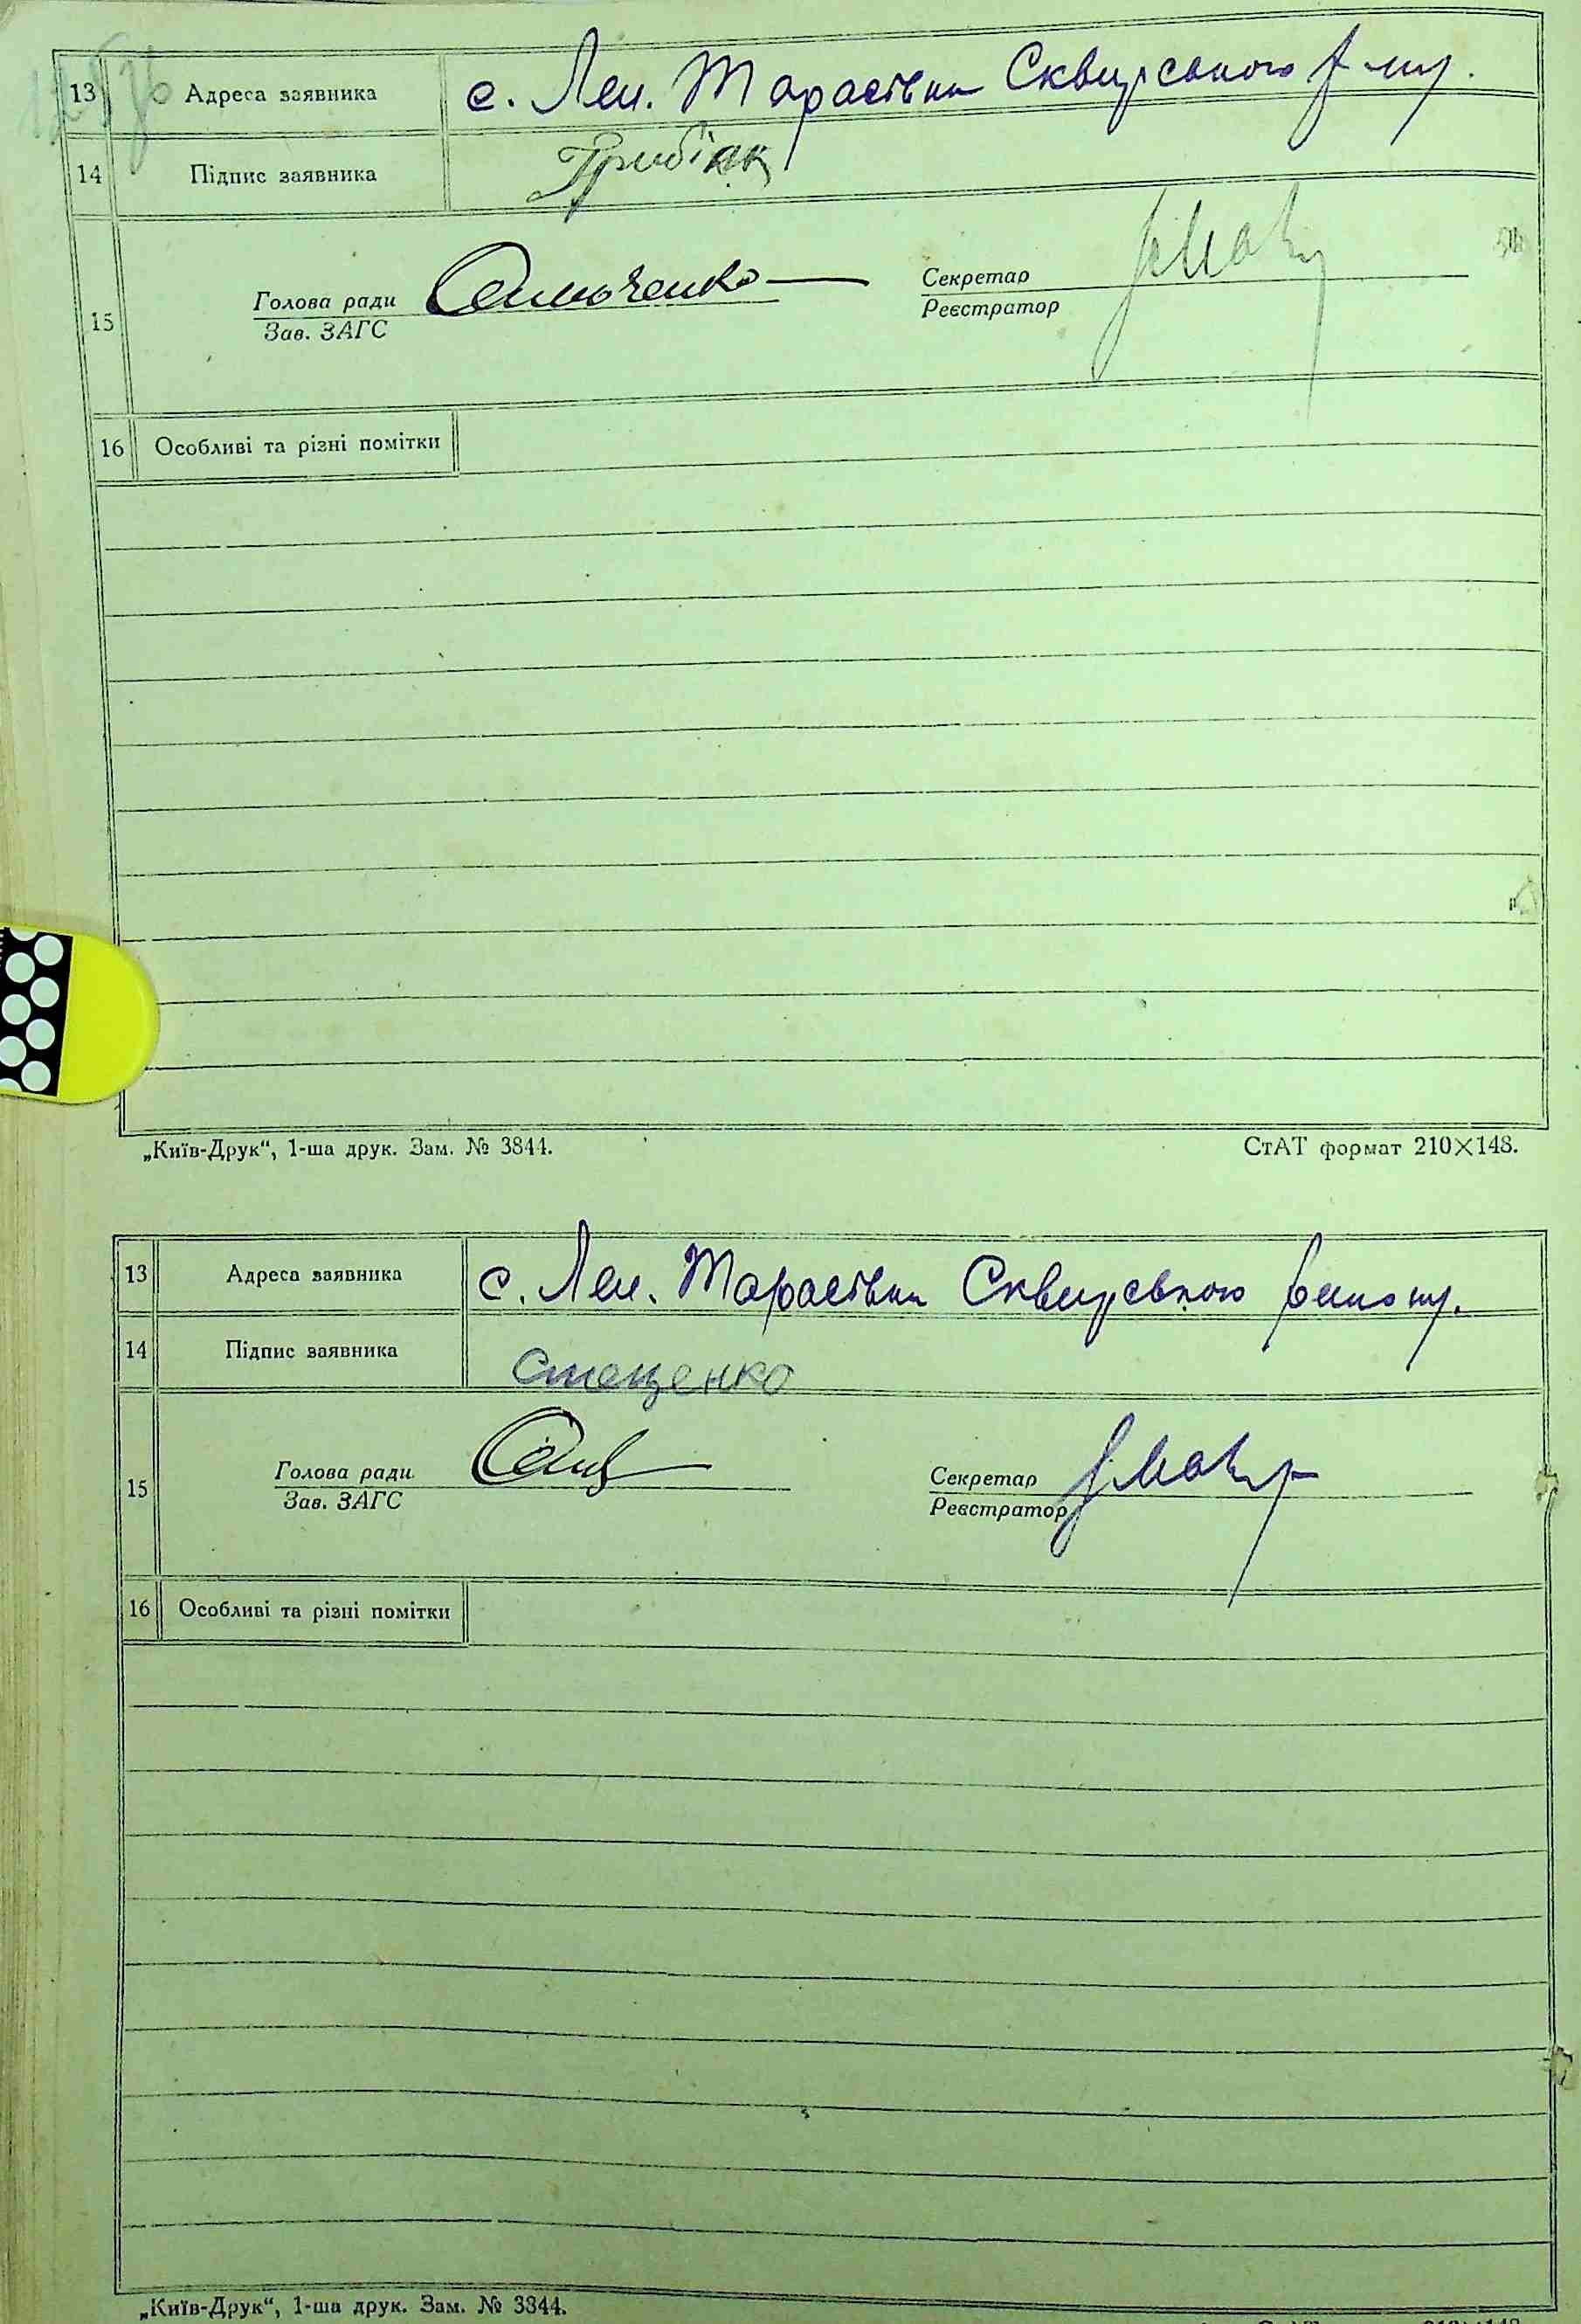 13 Адреса заявника с. Лен. Тарасівка Сквирського р-ну.
14 Підпис заявника Грибінк
15 Голова ради Самоченко Секретар
Зав. ЗАГС Реєстратор
16 Особливі та різні помітки
„Київ-Друк“, 1-ша друк. Зам. № 3844. СтАТ формат 210×148.
13 Адреса заявника с. Лен. Тарасівка Сквирського району.
14 Підпис заявника Стеценко
15 Голова ради Секретар
Зав. ЗАГС Реєстратор
16 Особливі та різні помітки
„Київ-Друк“, 1-ша друк. Зам. № 3844.